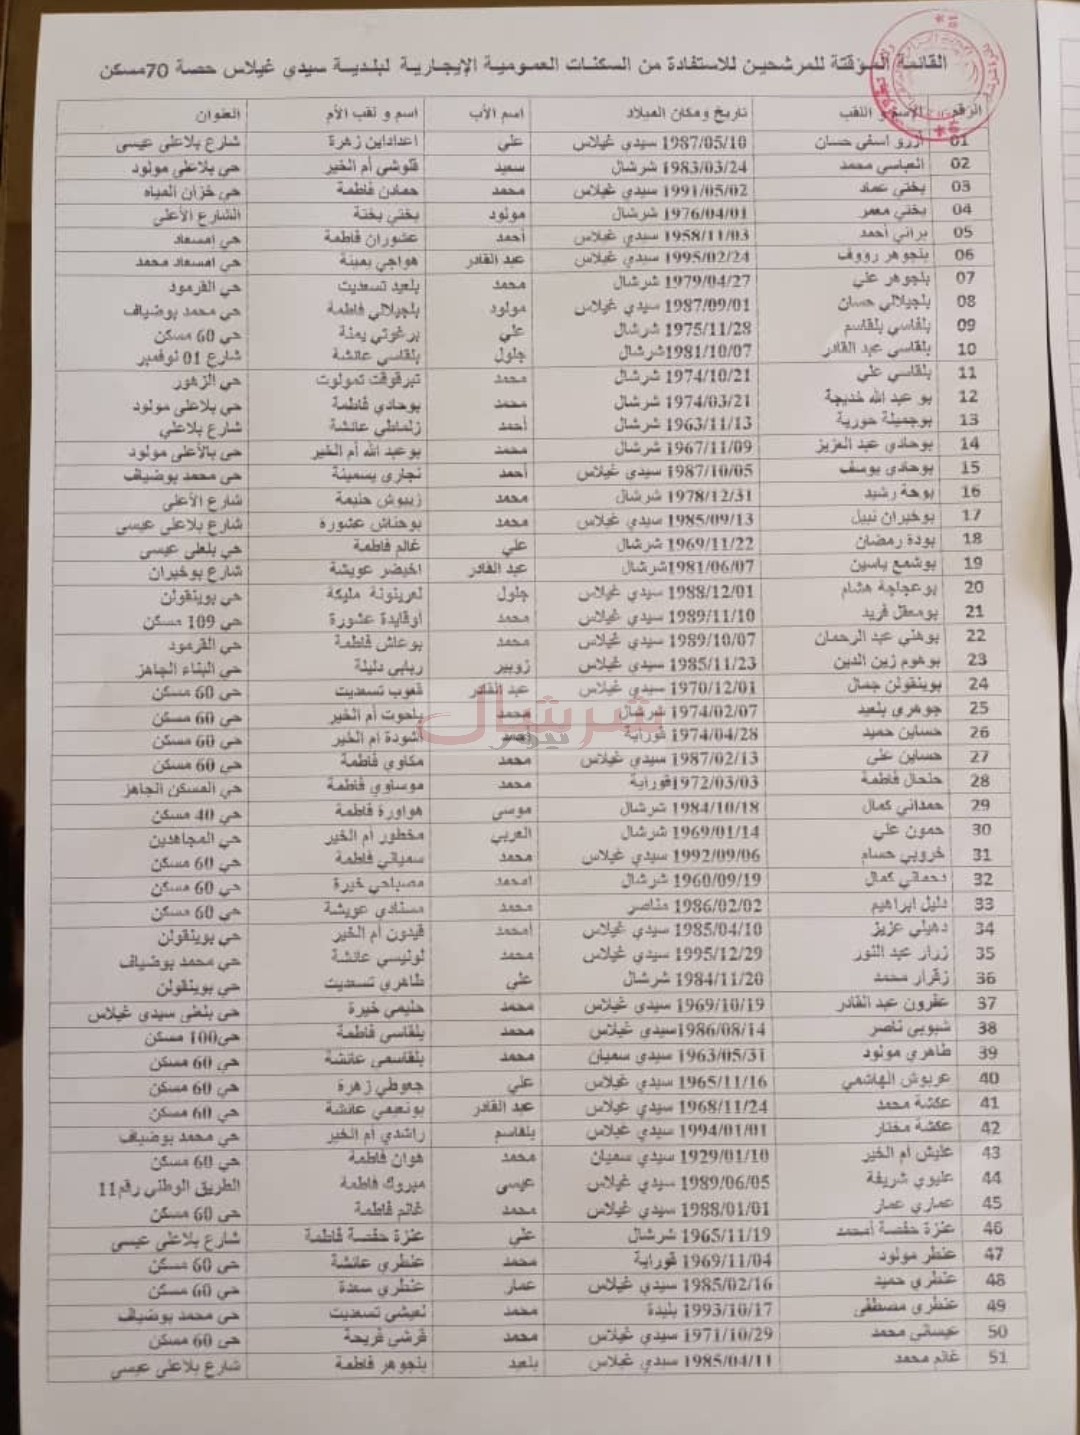 القائمة المؤقتة للمرشحين للاستفادة من السكنات العمومية الإيجارية لبلدية سيدي غيلاس حصة 70مسكن
الرقم الإسم و اللقب تاريخ ومكان الميلاد اسم الأب اسم و لقب الأم العنوان
01 أزرو اسفي حسان 1987/05/10 سيدي غيلاس علي اعدادين زهرة شارع بلاعلى عيسى
02 العباسي محمد 1983/03/24 شرشال سعيد قلوشي أم الخير حي بلاعلى مولود
03 بختي عماد 1991/05/02 سيدي غيلاس محمد حمادن فاطمة حي خزان المياه
04 بختي معمر 1976/04/01 شرشال مولود بختي بختة الشارع الأعلى
05 براني أحمد 1958/11/03 سيدي غيلاس أحمد عشوران فاطمة حي امسعاد
06 بلجوهر رووف 1995/02/24 سيدي غيلاس عبد القادر هواجي يمينة حي امسعاد محمد
07 بلجوهر علي 1979/04/27 شرشال محمد بلعيد تسعديت حي القرمود
08 بلجيلالي حسان 1987/09/01 سيدي غيلاس مولود بلجيلالي فاطمة حي محمد بوضياف
09 بلقاسي بلقاسم 1975/11/28 شرشال علي برغوتي يمنة حي 60 مسكن
10 بلقاسي عبد القادر 1981/10/07شرشال جلول بلقاسي عائشة شارع 01 نوفمبر
11 بلقاسي علي 1974/10/21 شرشال محمد تبرقوقت تمولوت حي الزهور
12 بو عبد الله خديجة 1974/03/21 شرشال محمد بوحادي فاطمة حي بلاعلى مولود
13 بوجميلة حورية 1963/11/13 شرشال أحمد زلماطي عائشة شارع بلاعلي
14 بوحادي عبد العزيز 1967/11/09 شرشال محمد بوعبد الله أم الخير حي بالأعلى مولود
15 بوحادي يوسف 1987/10/05 سيدي غيلاس أحمد نجاري يسمينة حي محمد بوضياف
16 بوحة رشيد 1978/12/31 شرشال محمد زيبوش حليمة شارع الأعلى
17 بوخيران نبيل 1985/09/13 سيدي غيلاس محمد بوحناش عشورة شارع بلاعلى عيسى
18 بودة رمضان 1969/11/22 شرشال علي غالم فاطمة حي بلعلى عيسى
19 بوشمع ياسين 1981/06/07شرشال عبد القادر اخيضر عويشة شارع بوخيران
20 بوعجاجة هشام 1988/12/01 سيدي غيلاس جلول لعرينونة مليكة حي بوينقولن
21 بومعقل فريد 1989/11/10 سيدي غيلاس محمد أوقايدة عشورة حي 109 مسكن
22 بوهني عبد الرحمان 1989/10/07 سيدي غيلاس محمد بوعاش فاطمة حي القرمود
23 بوهوم زين الدين 1985/11/23 سيدي غيلاس زوبير ربابي دليلة حي البناء الجاهز
24 بوينقولن جمال 1970/12/01 سيدي غيلاس عبد القادر قعوب تسعديت حي 60 مسكن
25 جوهري بلعيد 1974/02/07 شرشال محمد بلحوت أم الخير حي 60 مسكن
26 حساين حميد 1974/04/28 قوراية أحمد أشودة أم الخير حي 60 مسكن
27 حساين علي 1987/02/13 سيدي غيلاس محمد مكاوي فاطمة حي 60 مسكن
28 حلحال فاطمة 1972/03/03قوراية محمد موساوي فاطمة حي المسكن الجاهز
29 حمداني كمال 1984/10/18 شرشال موسى هواورة فاطمة حي 40 مسكن
30 حمون علي 1969/01/14 شرشال العربي مخطور أم الخير حي المجاهدين
31 خروبي حسام 1992/09/06 سيدي غيلاس محمد سمياني فاطمة حي 60 مسكن
32 دحماني كمال 1960/09/19 شرشال امحمد مصباحي خيرة حي 60 مسكن
33 دليل ابراهيم 1986/02/02 مناصر محمد مسنادي عويشة حي 60 مسكن
34 دهيلي عزيز 1985/04/10 سيدي غيلاس أمحمد قيدون أم الخير حي بوينقولن
35 زرار عبد النور 1995/12/29 سيدي غيلاس محمد لونيسي عائشة حي محمد بوضياف
36 زقرار محمد 1984/11/20 شرشال علي طاهري تسعديت حي بوينقولن
37 عفرون عبد القادر 1969/10/19 سيدي غيلاس محمد حليمي خيرة حي بلعلى سيدي غيلاس
38 شبوبي ناصر 1986/08/14سيدي غيلاس محمد بلقاسي فاطمة حي100 مسكن
39 طاهري مولود 1963/05/31 سيدي سميان محمد بلقاسمي عائشة حي 60 مسكن
40 عربوش الهاشمي 1965/11/16 سيدي غيلاس علي جعوطي زهرة حي 60 مسكن
41 عكشة محمد 1968/11/24 سيدي غيلاس عبد القادر بونعيمي عائشة حي 60 مسكن
42 عكشة مختار 1994/01/01 سيدي غيلاس بلقاسم راشدي أم الخير حي محمد بوضياف
43 عليش أم الخير 1929/01/10 سيدي سميان محمد هوان فاطمة حي 60 مسكن
44 عليوي شريفة 1989/06/05 سيدي غيلاس عيسى مبروك فاطمة الطريق الوطني رقم11
45 عماري عمار 1988/01/01 سيدي غيلاس محمد غانم فاطمة حي 60 مسكن
46 عنزة حفصة أمحمد 1965/11/19 شرشال علي عنزة حفصة فاطمة شارع بلاعلى عيسى
47 عنطر مولود 1969/11/04 قوراية محمد عنطري عائشة حي 60 مسكن
48 عنطري حميد 1985/02/16 سيدي غيلاس عمار عنطري سعدة حي 60 مسكن
49 عنطري مصطفى 1993/10/17 بليدة محمد نعيشي تسعديت حي محمد بوضياف
50 عيسانى محمد 1971/10/29 سيدي غيلاس محمد قرشي فريحة حي 60 مسكن
51 غانم محمد 1985/04/11 سيدي غيلاس بلعيد بلجوهر فاطمة شارع بلاعلى عيسى
شرشال
نيوز